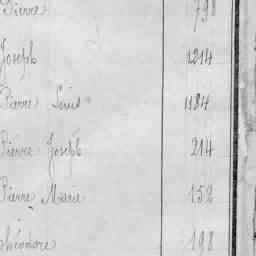 Pierre 798
Joseph 1214
Pierre Louis 1184
Pierre Joseph 214
Pierre Marie 152
Théodore 198